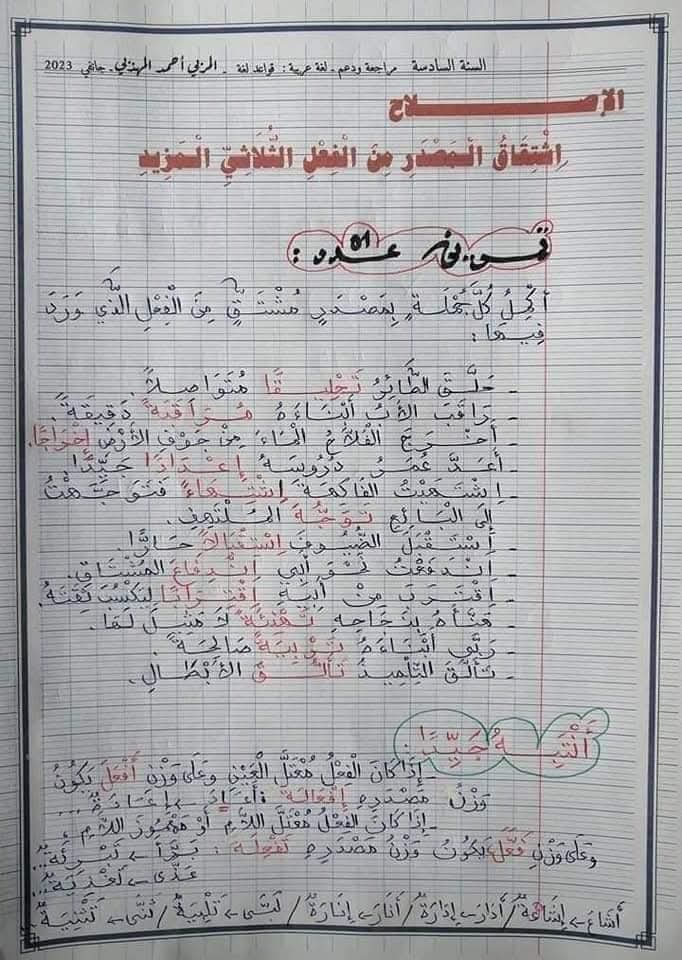 السنة السادسة مراجعة ودعم - لغة عربية : قواعد لغة - المربي أحمد المهذبي - جانفي 2023
الإصـــــــــلاح
اِشْتِقَاقُ الْمَصْدَرِ مِنَ الْفِعْلِ الثُّلَاثِيِّ الْمَزِيدِ
تمرين عدد 01 :
أُكْمِلُ كُلَّ جُمْلَةٍ بِمَصْدَرٍ مُشْتَقٍّ مِنَ الْفِعْلِ الَّذِي وَرَدَ
فِيهَا :
- حَلَّقَ الطَّائِرُ تَحْلِيقًا مُتَوَاصِلاً.
- رَاقَبَ الأَبُ أَبْنَاءَهُ مُرَاقَبَةً دَقِيقَةً.
- أَخْرَجَ الْفَلَّاحُ الْمَاءَ مِنْ جَوْفِ الأَرْضِ إِخْرَاجًا.
- أَعَدَّ عُمَرُ دُرُوسَهُ إِعْدَادًا جَيِّدًا.
- اِشْتَهَيْتُ الفَاكِهَةَ اِشْتِهَاءً فَتَوَجَّهْتُ
إِلَى الْبَائِعِ تَوَجُّهَ المُتَلَهِّفِ.
- اِسْتَقْبَلَ الضُّيُوفَ اِسْتِقْبَالاً حَارًّا.
- اِنْدَفَعْتُ نَحْوَ أَبِي اِنْدِفَاعَ المُشْتَاقِ.
- اِقْتَرَبَ مِنْ أَبِيهِ اِقْتِرَابًا لِيَكْسِبَ ثِقَتَهُ.
- هَنَّأَهُ بِنَجَاحِهِ تَهْنِئَةً لَا مَثِيلَ لَهَا.
- رَبَّى أَبْنَاءَهُ تَرْبِيَةً صَالِحَةً.
- تَأَلَّقَ التِّلْمِيذُ تَأَلُّقَ الأَبْطَالِ.
أَنْتَبِهُ جَيِّدًا :
- إِذَا كَانَ الْفِعْلُ مُعْتَلَّ الْعَيْنِ وَعَلَى وَزْنِ أَفْعَلَ يَكُونُ
وَزْنُ مَصْدَرِهِ إِفَالَة : أَعَادَ ← إِعَادَةٌ...
- إِذَا كَانَ الْفِعْلُ مُعْتَلَّ اللَّامِ أَوْ مَهْمُوزَ اللَّامِ ،
وعَلَى وَزْنِ فَعَّلَ يَكُونُ وَزْنُ مَصْدَرِهِ تَفْعِلَة : بَرَّأَ ← تَبْرِئَةٌ...
غَذَّى ← تَغْذِيَةٌ...
أَشَاعَ ← إِشَاعَةٌ / أَدَارَ ← إِدَارَةٌ / أَنَارَ ← إِنَارَةٌ / لَبَّى ← تَلْبِيَةٌ / ثَنَّى ← تَثْنِيَةٌ